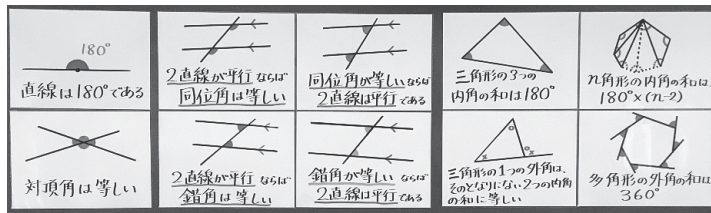 180°
直線は180°である
2直線が平行ならば
同位角は等しい
同位角が等しいならば
2直線は平行である
三角形の3つの
内角の和は180°
n角形の内角の和は
180°×(n-2)
対頂角は等しい
2直線が平行ならば
錯角は等しい
錯角が等しいならば
2直線は平行である
三角形の1つの外角は、
そのとなりにない2つの内角
の和に等しい
多角形の外角の和は
360°